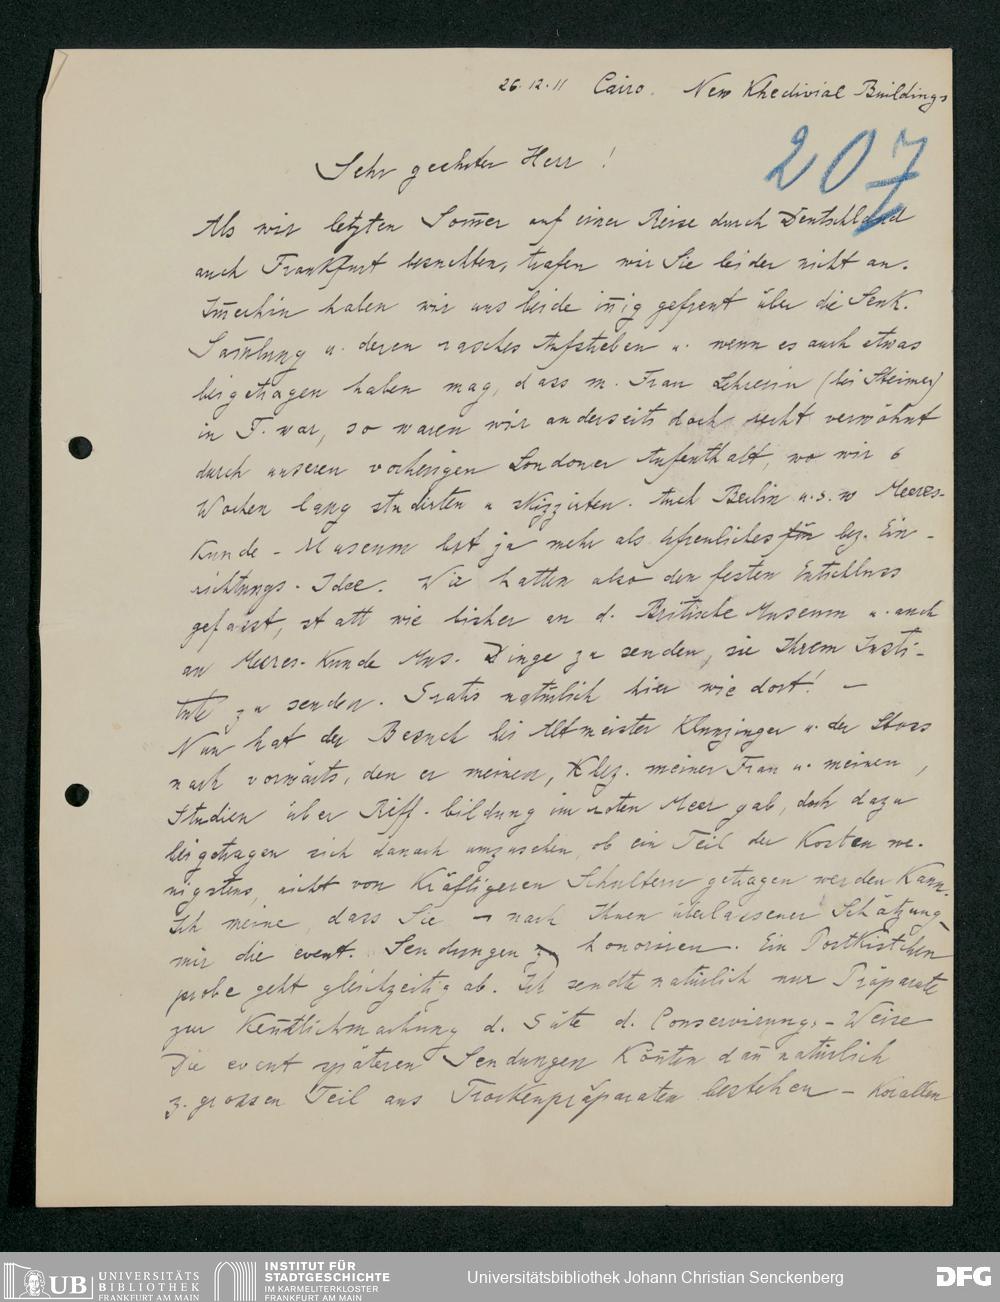 26.12.11 Cairo. New Khedivial Buildings
207
Sehr geehrter Herr!
Als wir letzten Som̅er auf einer Reise durch Deutschland
auch Frankfurt besuchten, trafen wir Sie leider nicht an.
Im̅erhin haben wir uns beide in̅ig gefreut über die Senk.
Sam̅lung u. deren rasches Aufstreben u. wenn es auch etwas
beigetragen haben mag, dass m. Frau Lehrerin (bei Steimer)
in F. war, so waren wir anderseits doch recht verwöhnt
durch unseren vorherigen Londoner Aufenthalt, wo wir 6
Wochen lang studirten u skizzirten. Auch Berlin u.s.w Meeres-
Kunde-Museum ist ja mehr als erfreuliches für bez. Ein-
richtungs-Idee. Wir hatten also den festen Entschluss
gefasst, statt wie bisher an d. Britische Museum u. auch
an Meeres-Kunde Mus. Dinge zu senden, sie Ihrem Insti-
tute zu senden. Gratis natürlich hier wie dort! —
Nun hat der Besuch bei Altmeister Klunzinger u. der Stoss
nach vorwärts, den er meinen, bez. meiner Frau u. meinen,
Studien über Riff-bildung im roten Meer gab, doch dazu
beigetragen sich danach umzusehen, ob ein Teil der Kosten we-
nigstens, nicht von kräftigeren Schultern getragen werden kann.
Ich meine, dass Sie — nach Ihnen überlassener Schätzung —
mir die event. Sendungen honoriren. Ein Postkistchen
probe geht gleichzeitig ab. Ich sende natürlich nur Präparate
zur Ken̅tlichmachung d. Güte d. Conservirungs-Weise
Die event späteren Sendungen kön̅ten dan̅ natürlich
z. grossen Teil aus Trockenpräparaten bestehen — Korallen
UB UNIVERSITÄTS
BIBLIOTHEK
FRANKFURT AM MAIN
INSTITUT FÜR
STADTGESCHICHTE
IM KARMELITERKLOSTER
FRANKFURT AM MAIN
Universitätsbibliothek Johann Christian Senckenberg
DFG